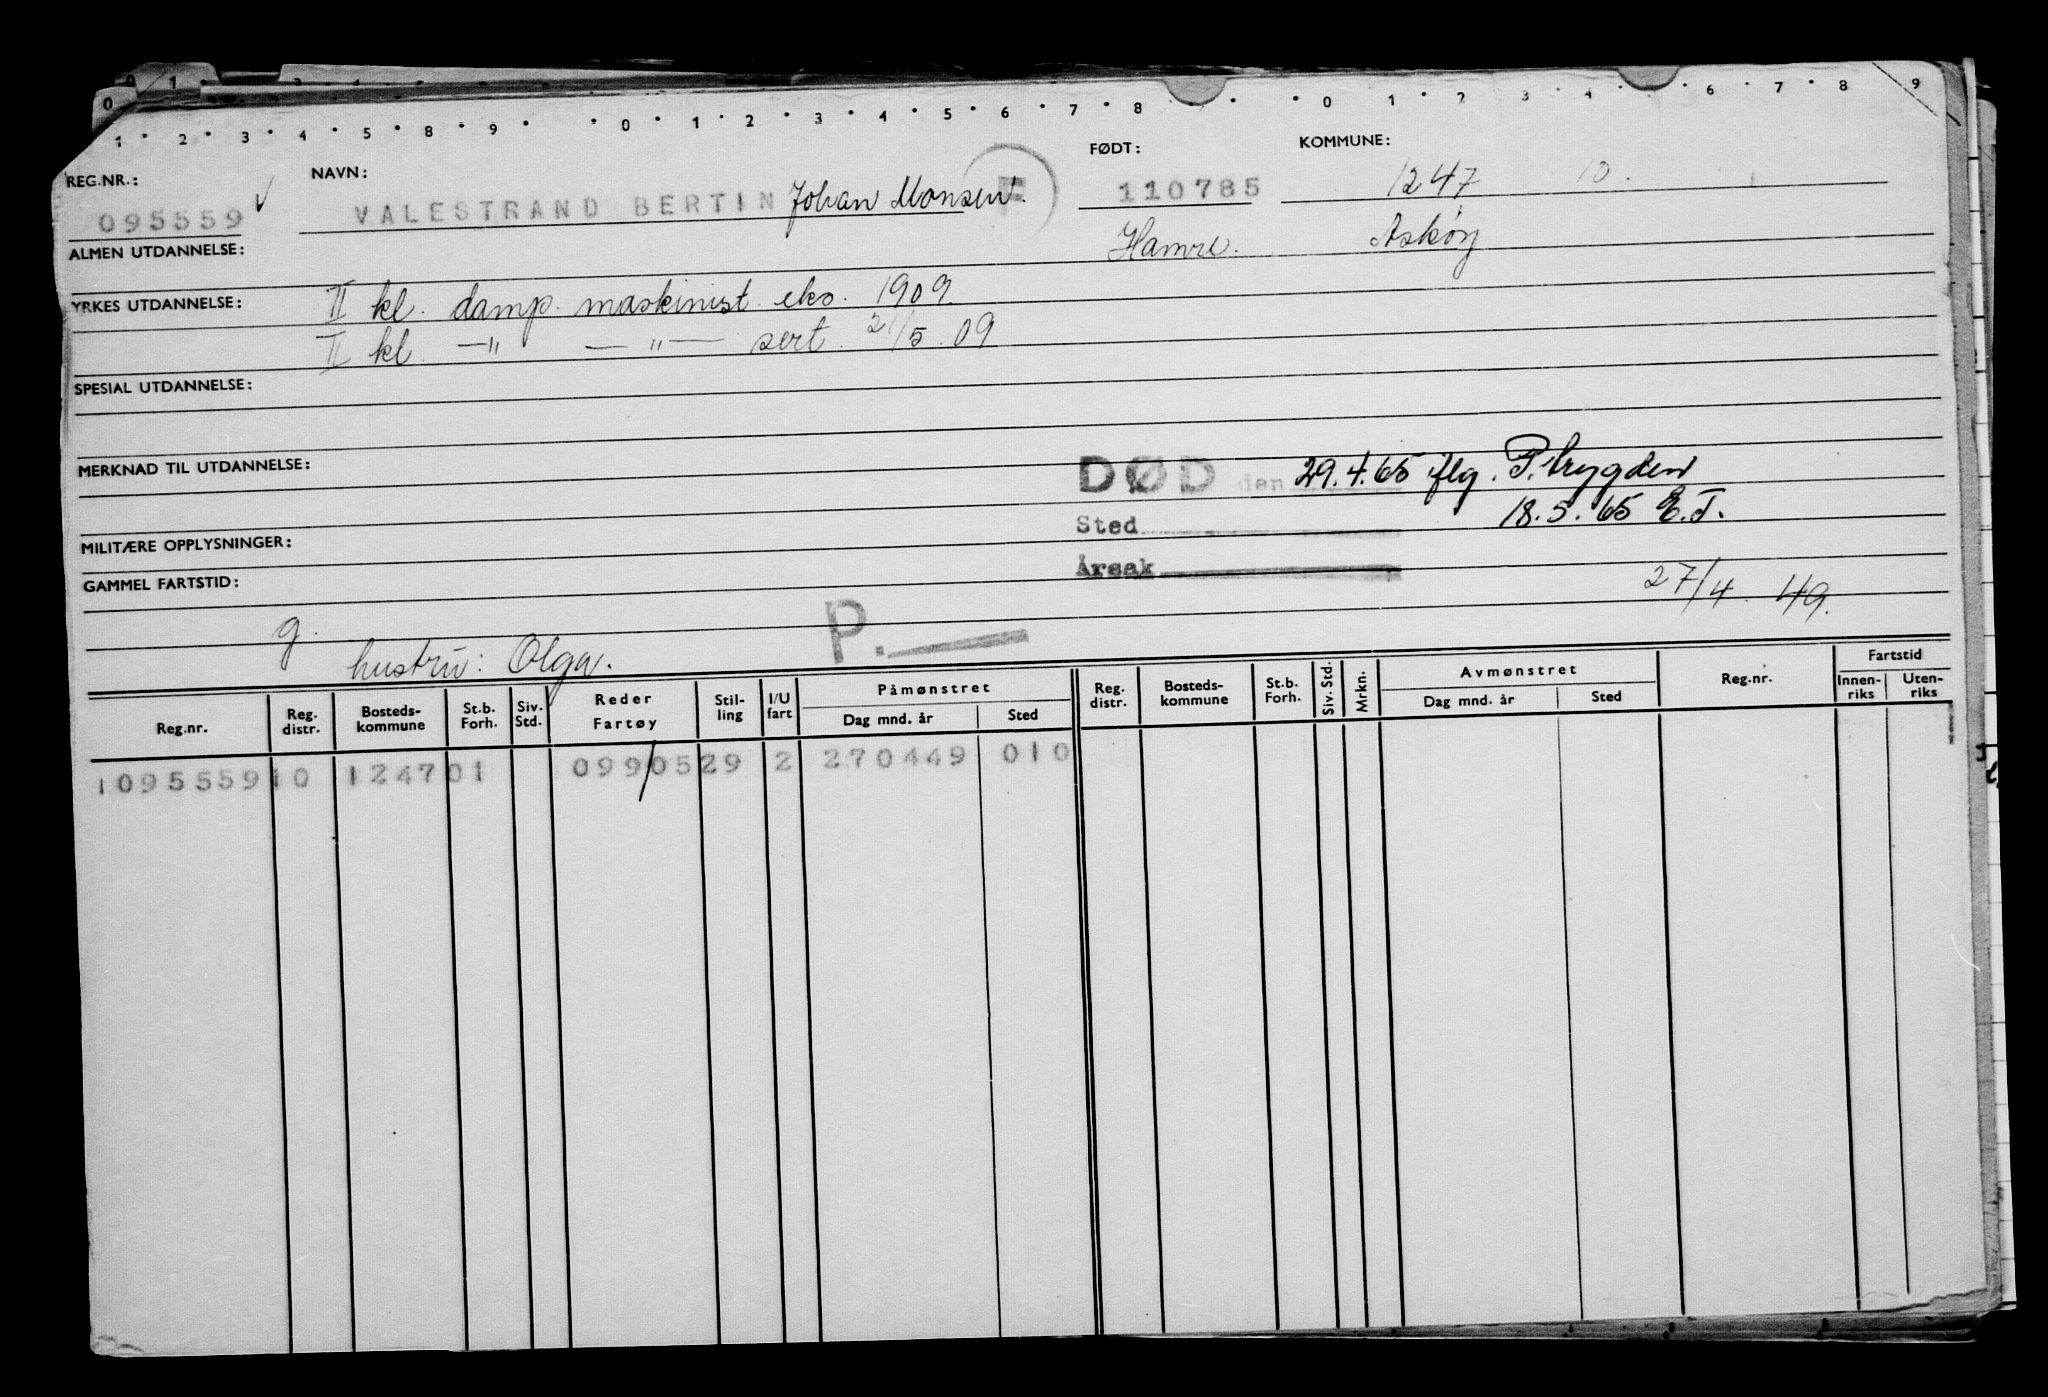 0 1 2 3 4 5 6 7 8 9 0 1 2 3 4 5 6 7 8 0 1 2 3 4 6 7 8 9
REG.NR.: NAVN: FØDT: KOMMUNE:
095559 VALESTRAND BERTIN Johan Monsen. 110785 1247 10.
ALMEN UTDANNELSE: Hamre. Askøy
YRKES UTDANNELSE: II kl. damp. maskinist. eks. 1909
II kl. —"— —"— sert. 21/5.09
SPESIAL UTDANNELSE:
MERKNAD TIL UTDANNELSE:
DØD den 29.4.65 flg. P.trygden
Sted 18.5.65 E.T.
MILITÆRE OPPLYSNINGER:
Årsak
GAMMEL FARTSTID: 27/4.49.
g. P.
hustru: Olga.
Reg.nr. Reg. distr. Bosteds-kommune St.b. Forh. Siv. Std. Reder Fartøy Stil-ling I/U fart Påmønstret Dag mnd. år Sted Reg. distr. Bosteds-kommune St.b. Forh. Siv. Std. Mrkn. Avmønstret Dag mnd. år Sted Reg.nr. Fartstid Innen-riks Uten-riks
109555910 124701 099/0529 2 270449 010